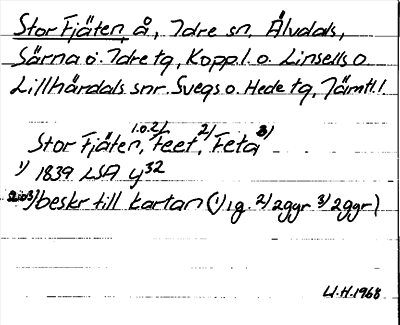 Stor Fjäten, å, Idre sn, Älvdals,
Särna o. Idre tg, Kopp.l. o. Linsells o
Lillhärdals snr. Svegs o. Hede tg, Jämtl.l
Stor Fjäten, 1.o.2/ Feet, 2/ Feta 3/
1) 1839 LSA y32
2o3)/beskr till kartan (1) 1g. 2/ 2ggr 3/ 2ggr)
U.H. 1968